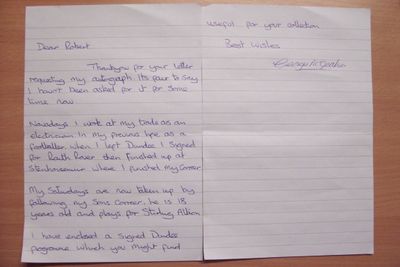 Dear Robert
Thankyou for your letter
requesting my autograph. Its fair to say
I havn't been asked for it for some
time now
Nowadays I work at my trade as an
electrician. In my previous life as a
footballer, when I left Dundee I signed
for Raith Rover then finished up at
Stenhousemuir where I finished my career
My Saturdays are now taken up by
following my sons career. he is 18
years old and plays for Stirling Albion
I have enclosed a signed Dundee
programme which you might find
useful for your collection
Best Wishes
George